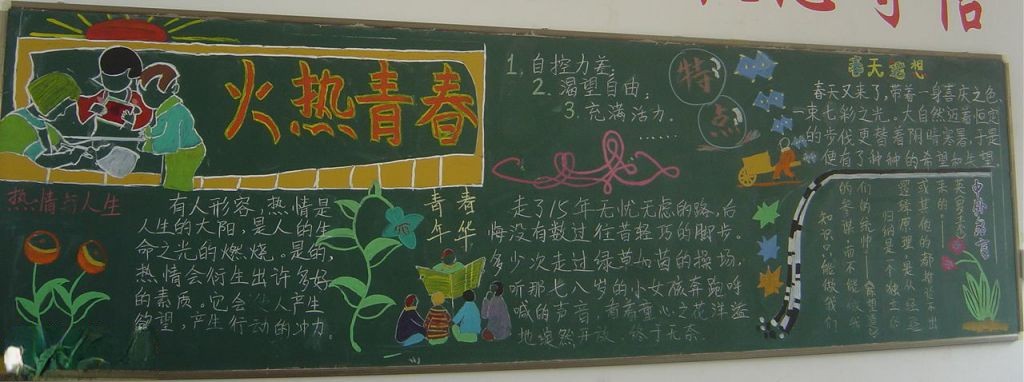 火热青春
热情与人生
有人形容，热情是
人生的太阳，是人的生
命之光的燃烧。是的，
热情会衍生出许多好
的素质。它会 人产生
欲望，产生行动的冲力。
青春
年华
1. 自控力差；
2. 渴望自由；
3. 充满活力。
……
特点
走了15年无忧无虑的路，后
悔没有数过往昔轻巧的脚步。
多少次走过绿草如茵的操场，
听那七八岁的小女孩奔跑呼
喊的声音，看着童心之花洋溢
地嫣然开放 终于无奈
春天遐想
春天又来了，带着一身喜庆之色，
一束七彩之光。大自然迈着恒定
的步伐更替着阴晴寒暑，于是
便有了种种的希望和失望
名言
来的
或其他的都推导不出
归纳是一个独立
们的统帅
的参谋，而不能做我
知识只能做我们